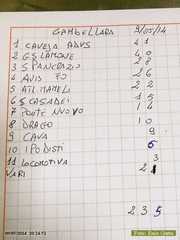 GAMBELLARA 9/05/14
1 CAVEJA ADVS 41
2 G S LAMONE 40
3 S PANCRAZIO 28
4 AVIS FO 26
5 ATL. MAMELI 22
6 S CASADEI 15
7 PONTE NUOVO 14
8 DRAGO 10
9 CAVA 9
10 IPODISTI 6
11 LOCOMOTIVA 3
VARI 21
235
Foto: Enzo Gatta